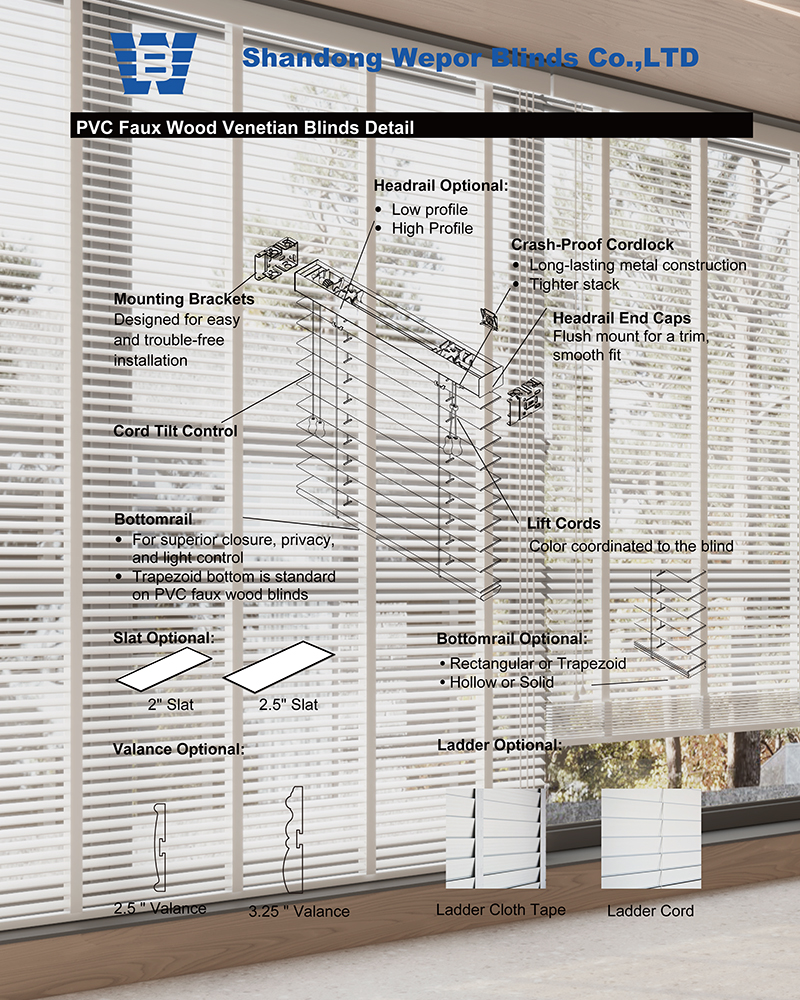 WB
Shandong Wepor Blinds Co.,LTD
PVC Faux Wood Venetian Blinds Detail
Headrail Optional:
• Low profile
• High Profile
Crash-Proof Cordlock
• Long-lasting metal construction
• Tighter stack
Mounting Brackets
Designed for easy
and trouble-free
installation
Headrail End Caps
Flush mount for a trim,
smooth fit
Cord Tilt Control
Bottomrail
• For superior closure, privacy,
and light control
• Trapezoid bottom is standard
on PVC faux wood blinds
Lift Cords
Color coordinated to the blind
Slat Optional:
2" Slat
2.5" Slat
Bottomrail Optional:
• Rectangular or Trapezoid
• Hollow or Solid
Valance Optional:
2.5 " Valance
3.25 " Valance
Ladder Optional:
Ladder Cloth Tape
Ladder Cord